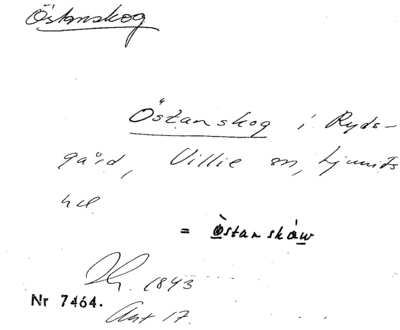 Östanskog
Östanskog i Ryds-
gård, Villie sn, Ljunits
hd
= Östanskåw
1843
Nr 7464.
Akt 17.